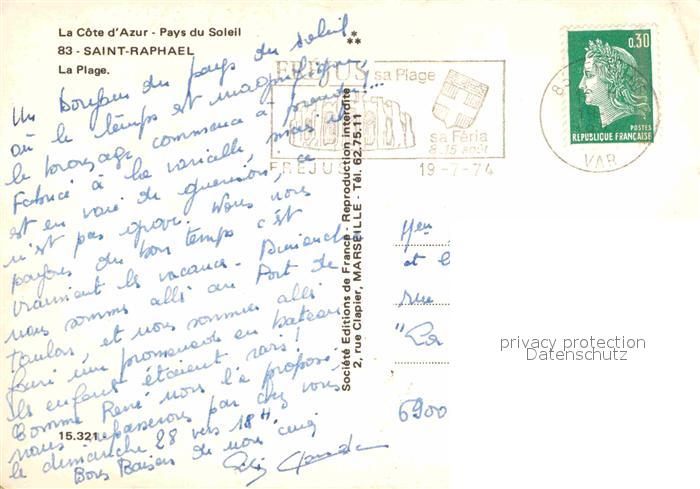 La Côte d'Azur - Pays du Soleil
83 - SAINT-RAPHAEL
La Plage.
Un bonjour du pays du soleil
où le temps est magnifique,
le bronzage commence à prendre!...
Fabrice à la varicelle, mais il
est en voie de guérison, ce
n'est pas grave. Nous nous
payons du bon temps c'est
vraiment les vacances. Dimanche
nous sommes allés au Port de
Toulon, et nous sommes allés
faire une promenade en bateau
les enfants étaient ravis!
Comme René nous l'a proposé
nous repasserons par chez vous
le dimanche 28 vers 18H
Bons Baisers de nous cinq
15.321
Société Editions de France - Reproduction interdite
2, rue Clapier, MARSEILLE - Tél. 62.75.11
FREJUS sa Plage
sa Féria
8.15 août
FREJUS
19-7-74
83
VAR
0,30
POSTES
REPUBLIQUE FRANÇAISE
et
rue
"La
6900
privacy protection
Datenschutz